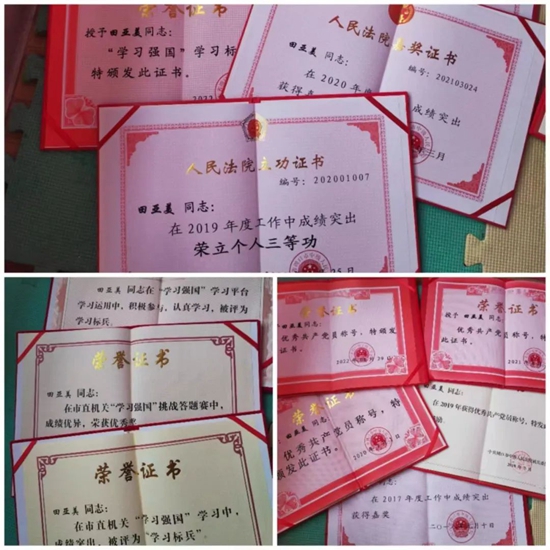 荣誉证书
授予田亚美同志:
“学习强国”学习标
特颁发此证书。
人民法院嘉奖证书
编号:202103024
田亚美 同志:
在 2020 年度
成绩突出
获得嘉
人民法院立功证书
编号:202001007
田亚美 同志:
在 2019 年度工作中成绩突出
荣立个人三等功
田亚美 同志在“学习强国”学习平台
学习运用中,积极参与,认真学习,被评为
学习标兵。
荣誉证书
田亚美 同志:
在市直机关“学习强国”挑战答题赛中,
成绩优异,荣获优秀奖
荣誉证书
田亚美 同志:
在市直机关“学习强国”学习中,
成绩突出,被评为“学习标兵”
荣誉证书
授予 田亚美 同志:
优秀共产党员称号,特颁发
证书。
荣誉证书
授予 田亚美 同志:
优秀共产党员称号,特
此证书。
荣誉证书
田亚美 同志:
优秀共产党员称号,特
颁发此证书。
田亚美 同志:
在 2019 年获得优秀共产党员称号,特发此
田亚美 同志:
在 2017 年度工作中成绩突出
获得嘉奖